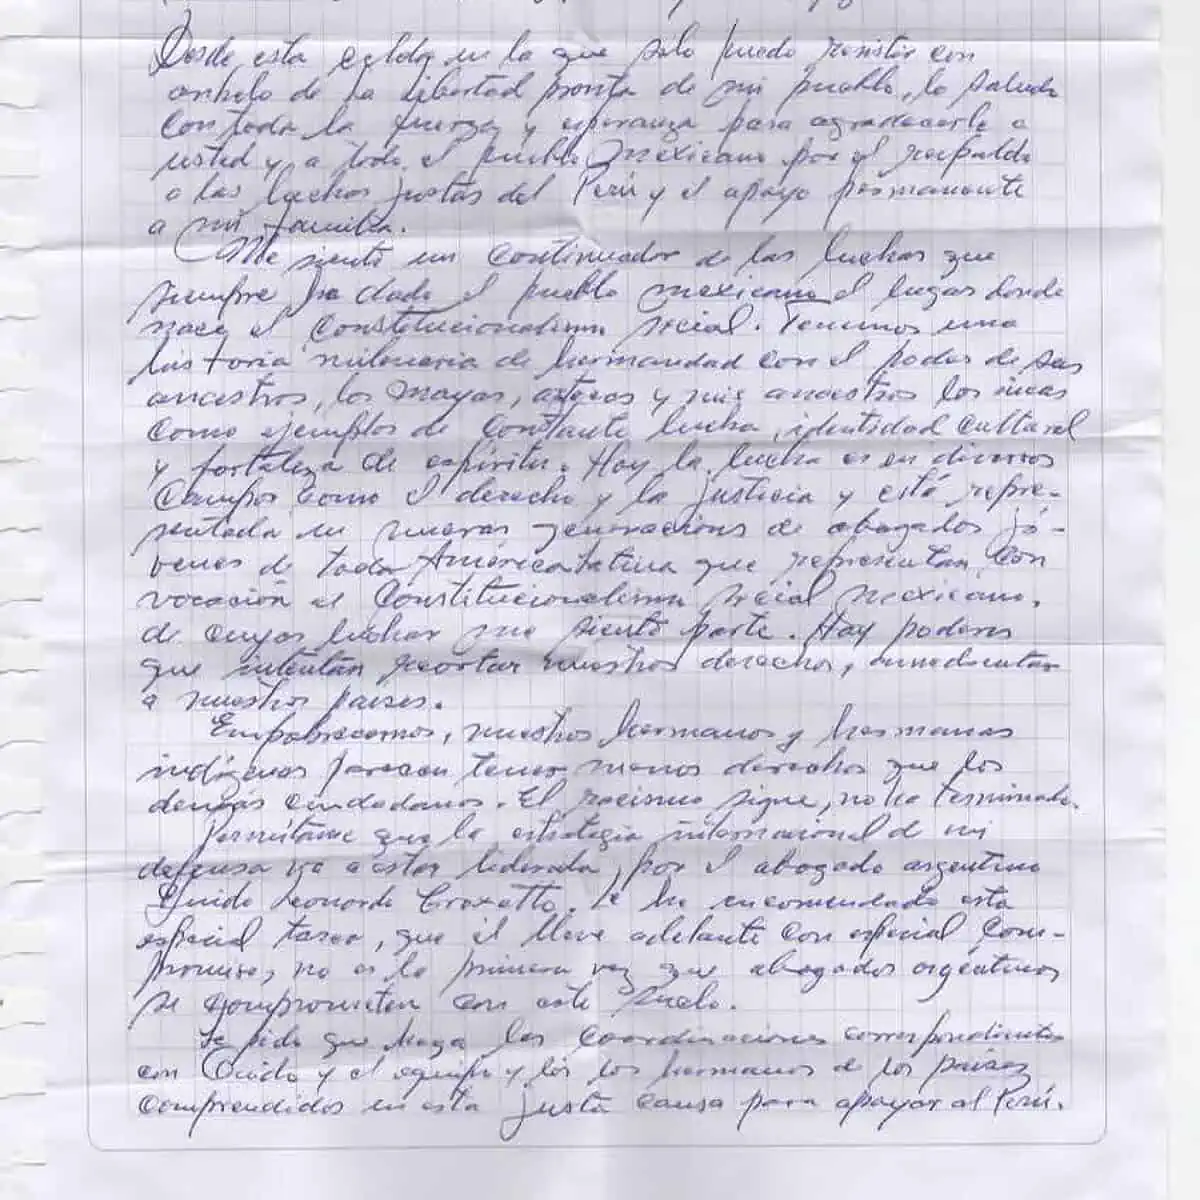 Desde esta celda en la que solo puedo resistir con
anhelo de la libertad pronta de mi pueblo, lo saludo
con toda la fuerza y esperanza para agradecerle a
usted y a todo el pueblo mexicano por el respaldo
a las luchas justas del Perú y el apoyo permanente
a mi familia.
Me siento un continuador de las luchas que
siempre ha dado el pueblo mexicano el lugar donde
nace el constitucionalismo social. Tenemos una
historia milenaria de hermandad con el poder de sus
ancestros, los mayas, aztecas y mis ancestros los incas
como ejemplos de constante lucha, identidad cultural
y fortaleza de espíritu. Hoy la lucha es en diversos
campos como el derecho y la justicia y está repre-
sentada en nuevas generaciones de abogados jó-
venes de toda América Latina que representan con
vocación el constitucionalismo social mexicano,
de cuyas luchas me siento parte. Hay poderes
que intentan recortar nuestros derechos,
a nuestros países.
Empobrecernos, nuestros hermanos y hermanas
indígenas parecen tener menos derechos que los
demás ciudadanos. El racismo sigue, no ha terminado.
Permítame que la estrategia internacional de mi
defensa va a estar liderada, por el abogado argentino
Guido Leonardo Croxatto. Le he encomendado esta
especial tarea, que él lleve adelante con especial com-
promiso, no es la primera vez que abogados argentinos
se comprometen con este suelo.
Le pido que haga las coordinaciones correspondientes
con Guido y el equipo y los hermanos de los países
comprendidos en esta justa causa para apoyar al Perú.